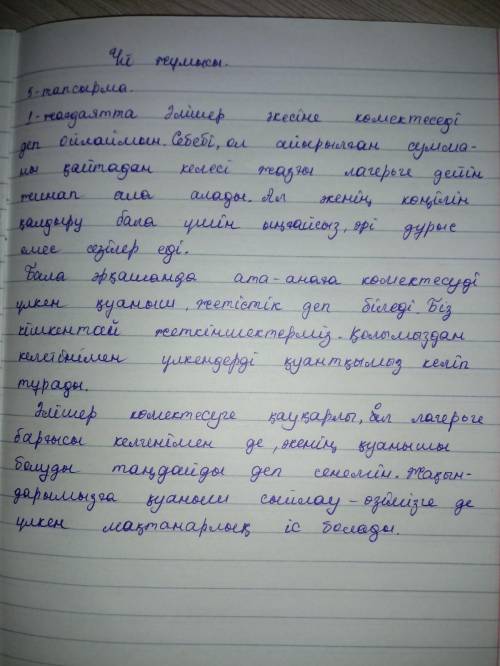 Үй жұмысы.
5-тапсырма.
1-жағдаятта Әлішер әкесіне көмектеседі
деп ойлаймын. Себебі, ол айырылған сумма-
ны қайтадан келесі жазғы лагерьге дейін
жинап ала алады. Ал әкенің көңілін
қалдыру бала үшін ыңғайсыз, әрі дұрыс
емес сезілер еді.
Бала әрқашанда ата-анаға көмектесуді
үлкен қуаныш, жетістік деп біледі. Біз
кішкентай жеткіншектерміз. Қолымыздан
келгенімен үлкендерді қуантқымыз келіп
тұрады.
Әлішер көмектесуге қауқарлы, ол лагерьге
барғысы келгенімен де, әкенің қуанышы
болуды таңдайды деп сенемін. Жақын-
дарымызға қуаныш сыйлау – өзімізге де
үлкен мақтанарлық іс болады.